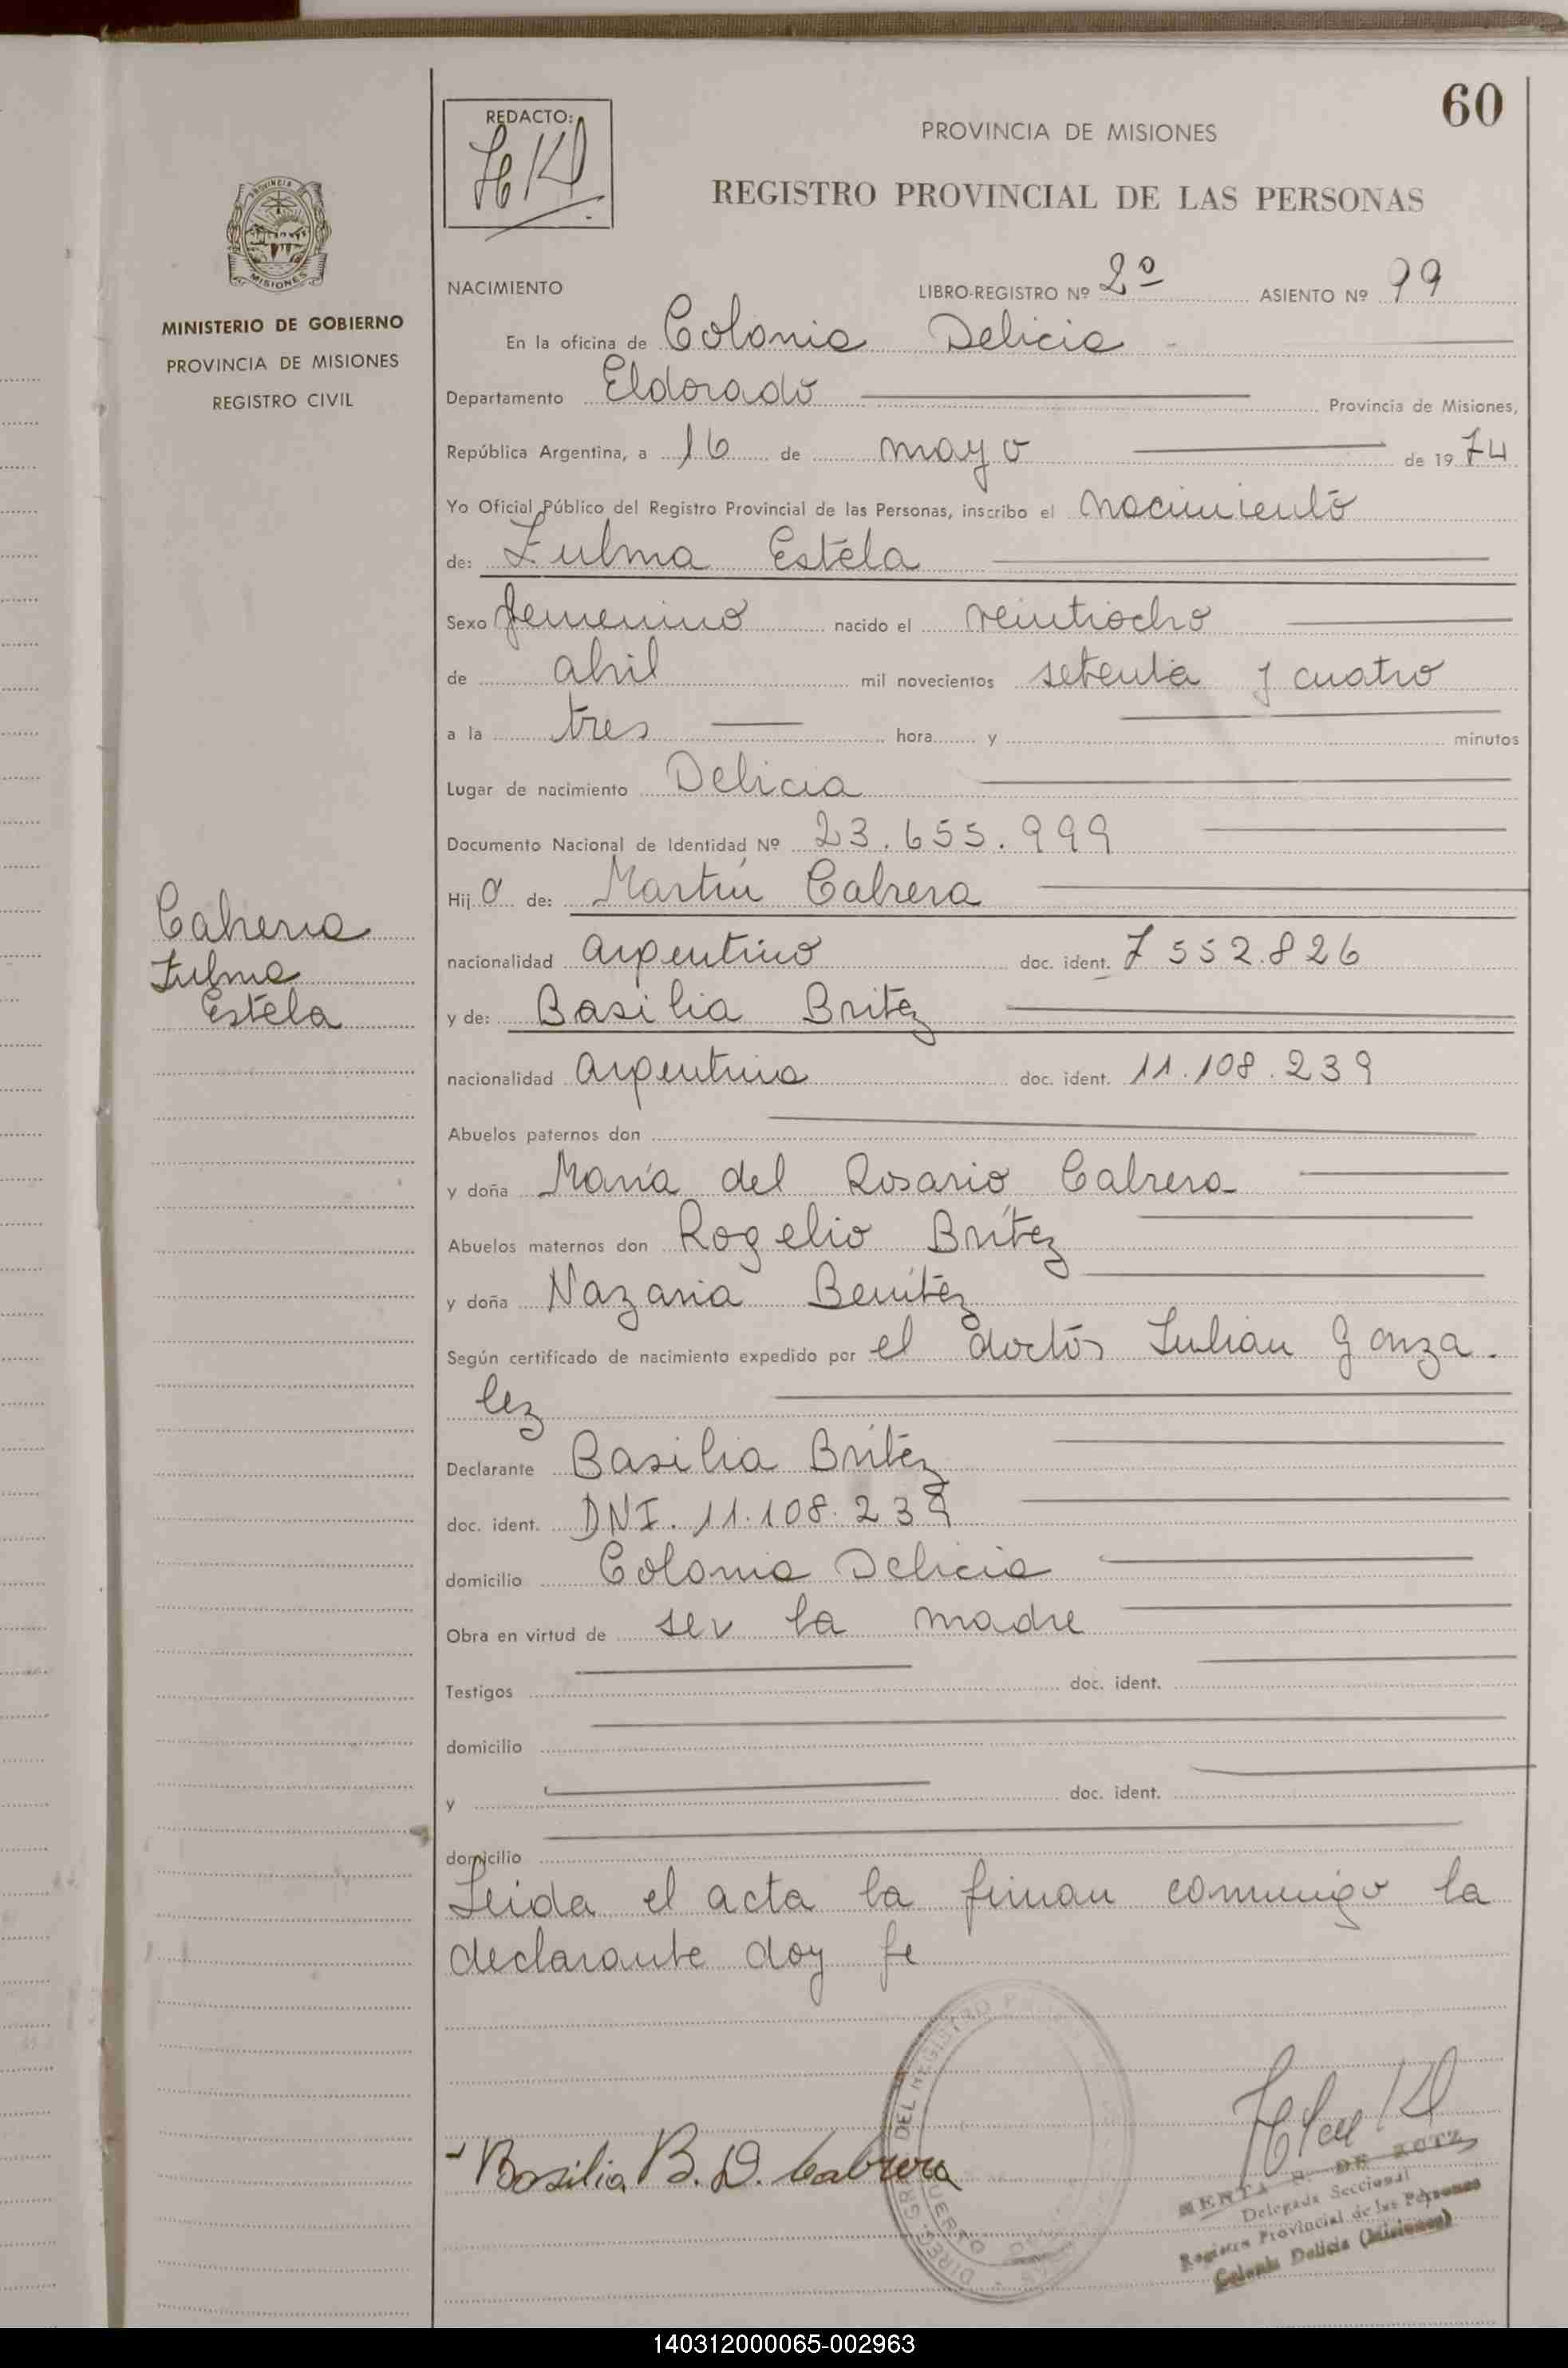 60
REDACTO:
PROVINCIA DE MISIONES
REGISTRO PROVINCIAL DE LAS PERSONAS
PROVINCIA
MISIONES
MINISTERIO DE GOBIERNO
PROVINCIA DE MISIONES
REGISTRO CIVIL
NACIMIENTO LIBRO-REGISTRO Nº 2º ASIENTO Nº 99
En la oficina de Colonia Delicia
Departamento Eldorado Provincia de Misiones,
República Argentina, a 16 de mayo de 1974
Yo Oficial Público del Registro Provincial de las Personas, inscribo el nacimiento
de: Zulma Estela
Sexo femenino nacido el veintiocho
de abril mil novecientos setenta y cuatro
a la tres hora y minutos
Lugar de nacimiento Delicia
Documento Nacional de Identidad Nº 23.655.999
Hija de: Martín Cabrera
Cabrera
Zulma
Estela
nacionalidad argentino doc. ident. 7552.826
y de: Basilia Britez
nacionalidad argentina doc. ident. 11.108.239
Abuelos paternos don
y doña María del Rosario Cabrera
Abuelos maternos don Rogelio Brítez
y doña Nazaria Benítez
Según certificado de nacimiento expedido por el doctor Julian Gonza-
lez
Declarante Basilia Britez
doc. ident. DNI. 11.108.239
domicilio Colonia Delicia
Obra en virtud de ser la madre
Testigos doc. ident.
domicilio
y doc. ident.
domicilio
Leida el acta la firman conmigo la
declarante doy fe
Basilia B. D. Cabrera
DEL REGISTRO
DE ZOTZ
Delegada Seccional
Registro Provincial de las Personas
Colonia Delicia (Misiones)
140312000065-002963